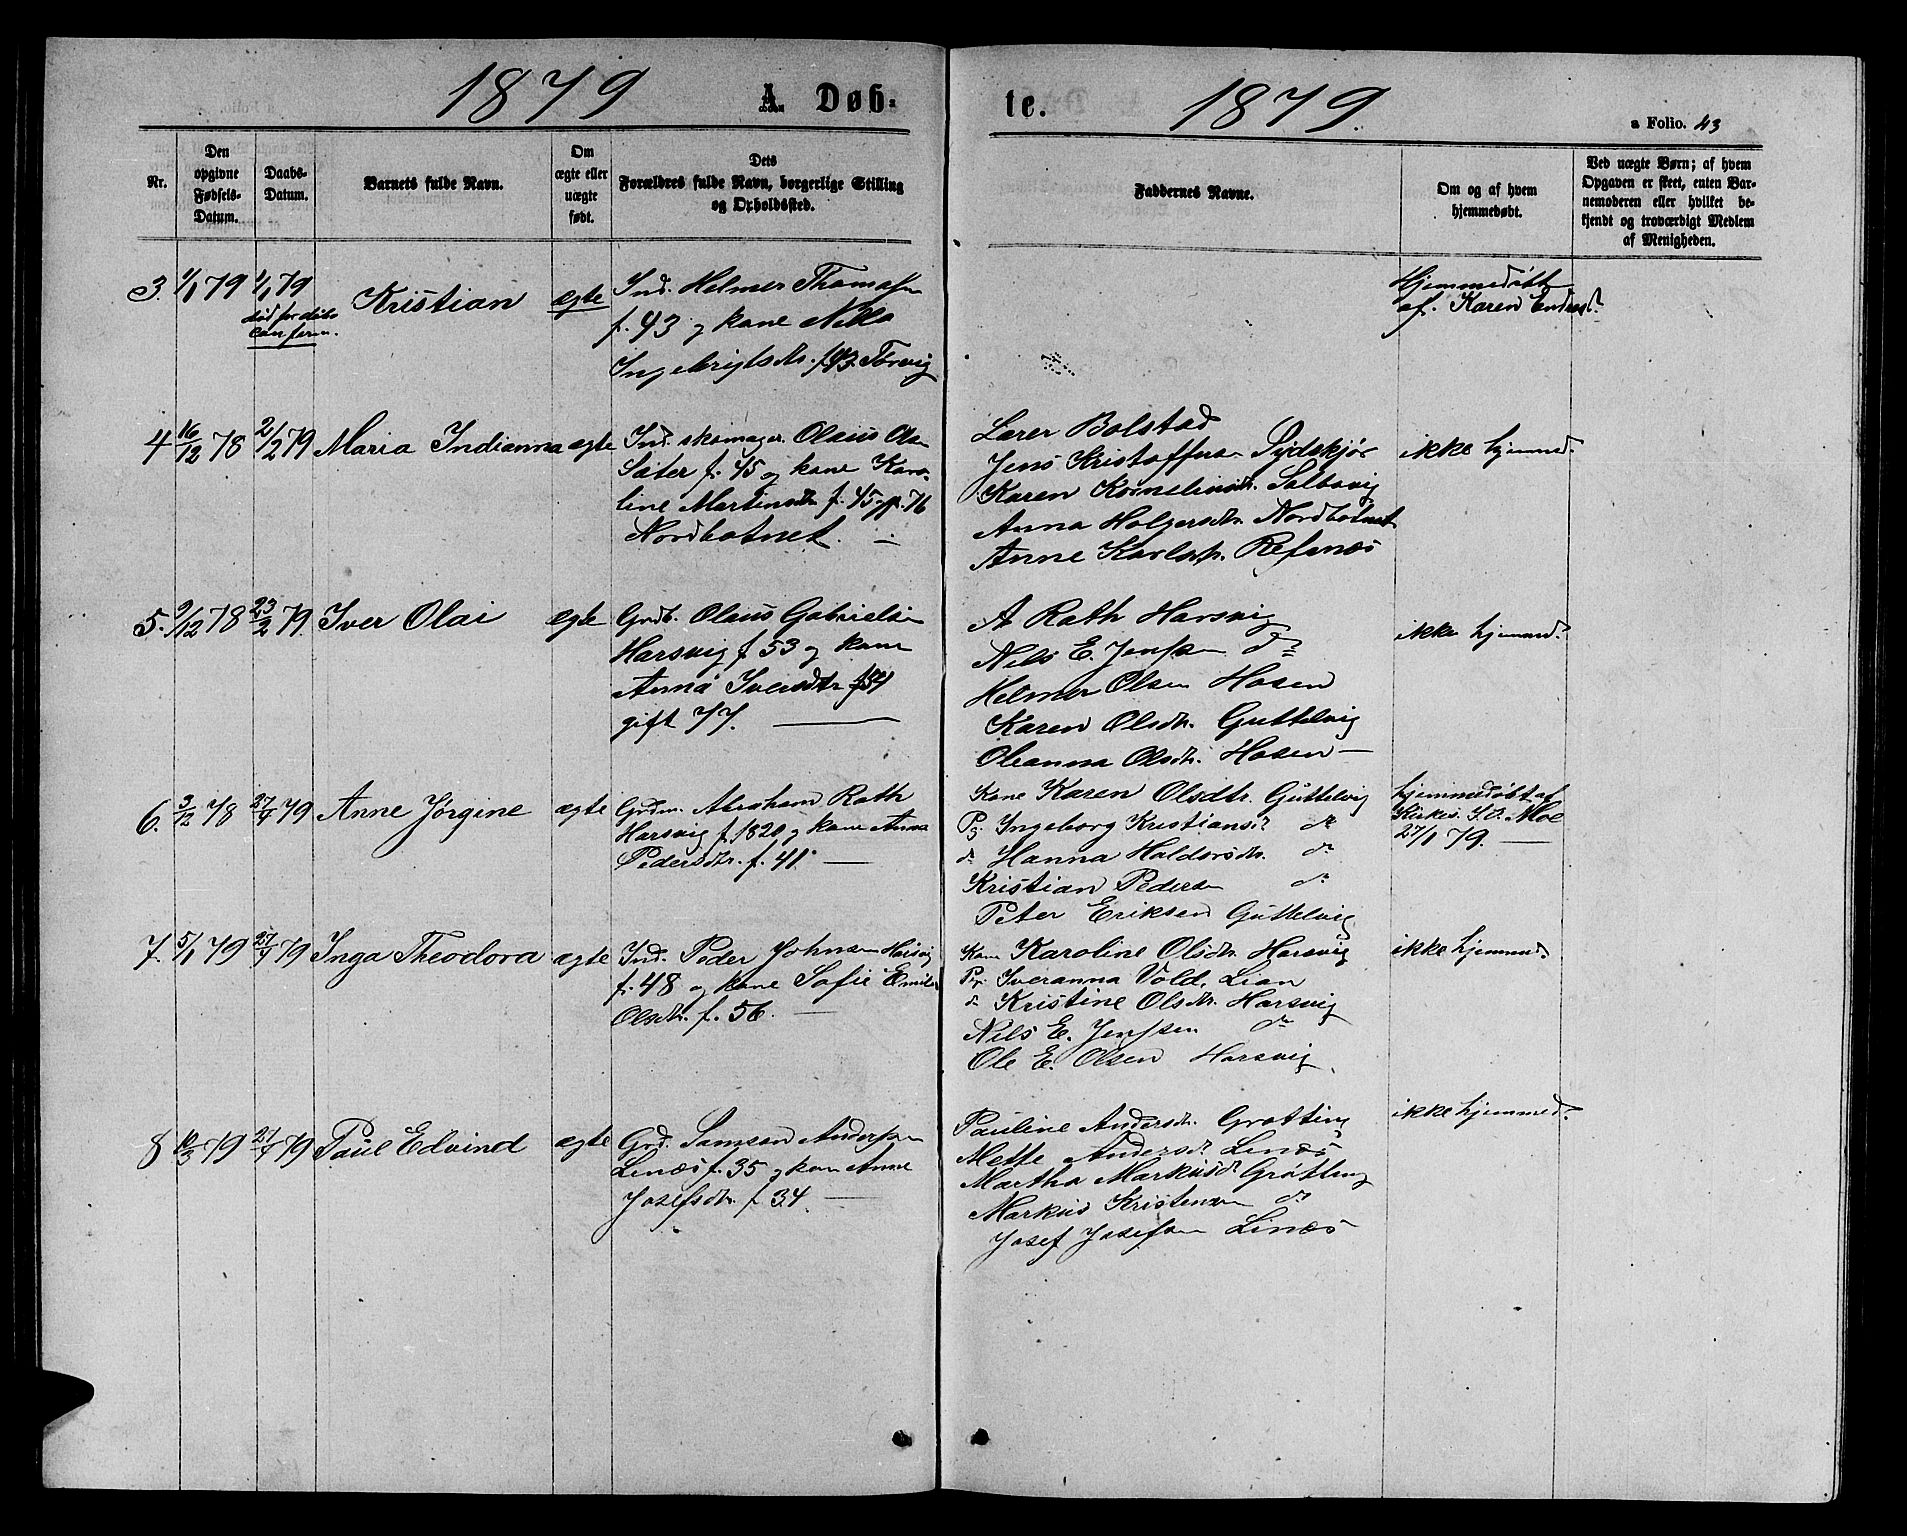 1879 A Døb-
te. 1879.
a Folio. 43
Nr.
Den opgivne Fødsels-Datum.
Daabs-Datum.
Barnets fulde Navn.
Om ægte eller uægte født.
Dets Forældres fulde Navn, borgerlige Stilling og Opholdssted.
Faddernes Navne.
Om og af hvem hjemmedøbt.
Ved uægte Børn; af hvem Opgaven er skeet, enten Barnemoderen eller hvilket bekjendt og troværdigt Medlem af Menigheden.
3. 1/1 79 1/1 79 Kristian ægte
død før daabs
conferm.
Ind. Helmer Thomassen
f. 43 og kone Nilla
Ingebrigtsdtr. f. 43. Tørvig
Hjemmedøbt
af. Karen Endresd.
4 16/12 78 2/2 79 Maria Indianna ægte
Ind. skomager Olaus Olsen
Sæter f. 45 og kone Karo-
line Martinsdtr f. 45 gift 76
Nordbotnet.
Lærer Bolstad
Jens Kristoffersen Sydskjør
Karen Kornelius dtr. Salbovig
Anna Holgersdtr. Nordbotnet
Anne Karlsdtr. Refsnæs
ikke hjemmed.
5. 9/12 78 23/2 79. Iver Olai ægte
Grdb. Olaus Gabrielsen
Harsvig f 53 og kone
Anna Iversdtr f 54
gift 77.
A Rath Harsvig
Nils E. Jenssen do
Helmer Olsen Hosen
Karen Olsdtr. Guttelvig
Oleanna Olsdtr. Hosen
ikke hjemmed.
6. 3/12 78 27/4 79 Anne Jørgine ægte
Grdm. Abraham Rath
Harsvig f. 1820 og kone Anna
Pedersdtr. f. 41.
Kone Karen Olsdtr. Guttelvig
Pg. Ingeborg Kristiansd. do
do Hanna Haldorsdtr. do
Kristian Pedersen do
Peter Eriksen Guttelvig
hjemmedøbt af
Kirkes. J. O. Moe
27/1 79.
7. 5/1 79 27/4 79 Inga Theodora ægte
Ind. Peder Johnsen Harsvig
f. 48 og kone Sofie Emilie
Olsdtr. f. 56.
Kone Karoline Olsdtr. Harsvig
Pg. Iveranna Vold, Lian
do Kristine Olsdtr. Harsvig
Nils E. Jenssen do
Ole E. Olsen Harsvig
ikke hjemmed.
8 10/3 79 27/4 79 Paul Edvind ægte
Grd. Samson Anderssen
Linæs f. 35 og kone Anne
Josefsdtr. f 34.
Pauline Andersdtr. Grøtting
Mette Andersdt Linæs
Martha Markusdt Grøtting
Markus Kristensen do
Josef Josefsen Linæs
ikke hjemmed.